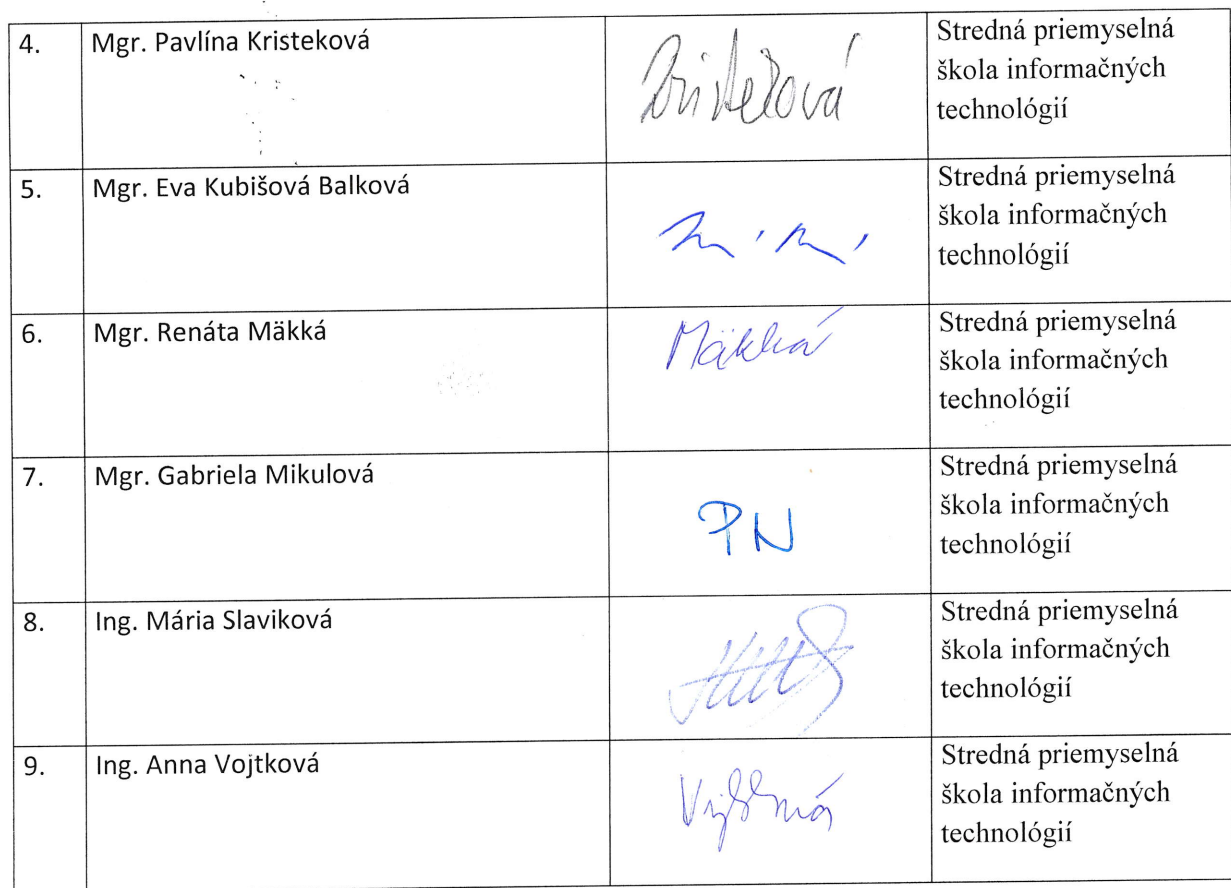 4. Mgr. Pavlína Kristeková Kristeková Stredná priemyselná
škola informačných
technológií
5. Mgr. Eva Kubišová Balková Stredná priemyselná
škola informačných
technológií
6. Mgr. Renáta Mäkká Mäkká Stredná priemyselná
škola informačných
technológií
7. Mgr. Gabriela Mikulová Stredná priemyselná
škola informačných
PN
technológií
8. Ing. Mária Slaviková Stredná priemyselná
škola informačných
technológií
9. Ing. Anna Vojtková Stredná priemyselná
škola informačných
technológií